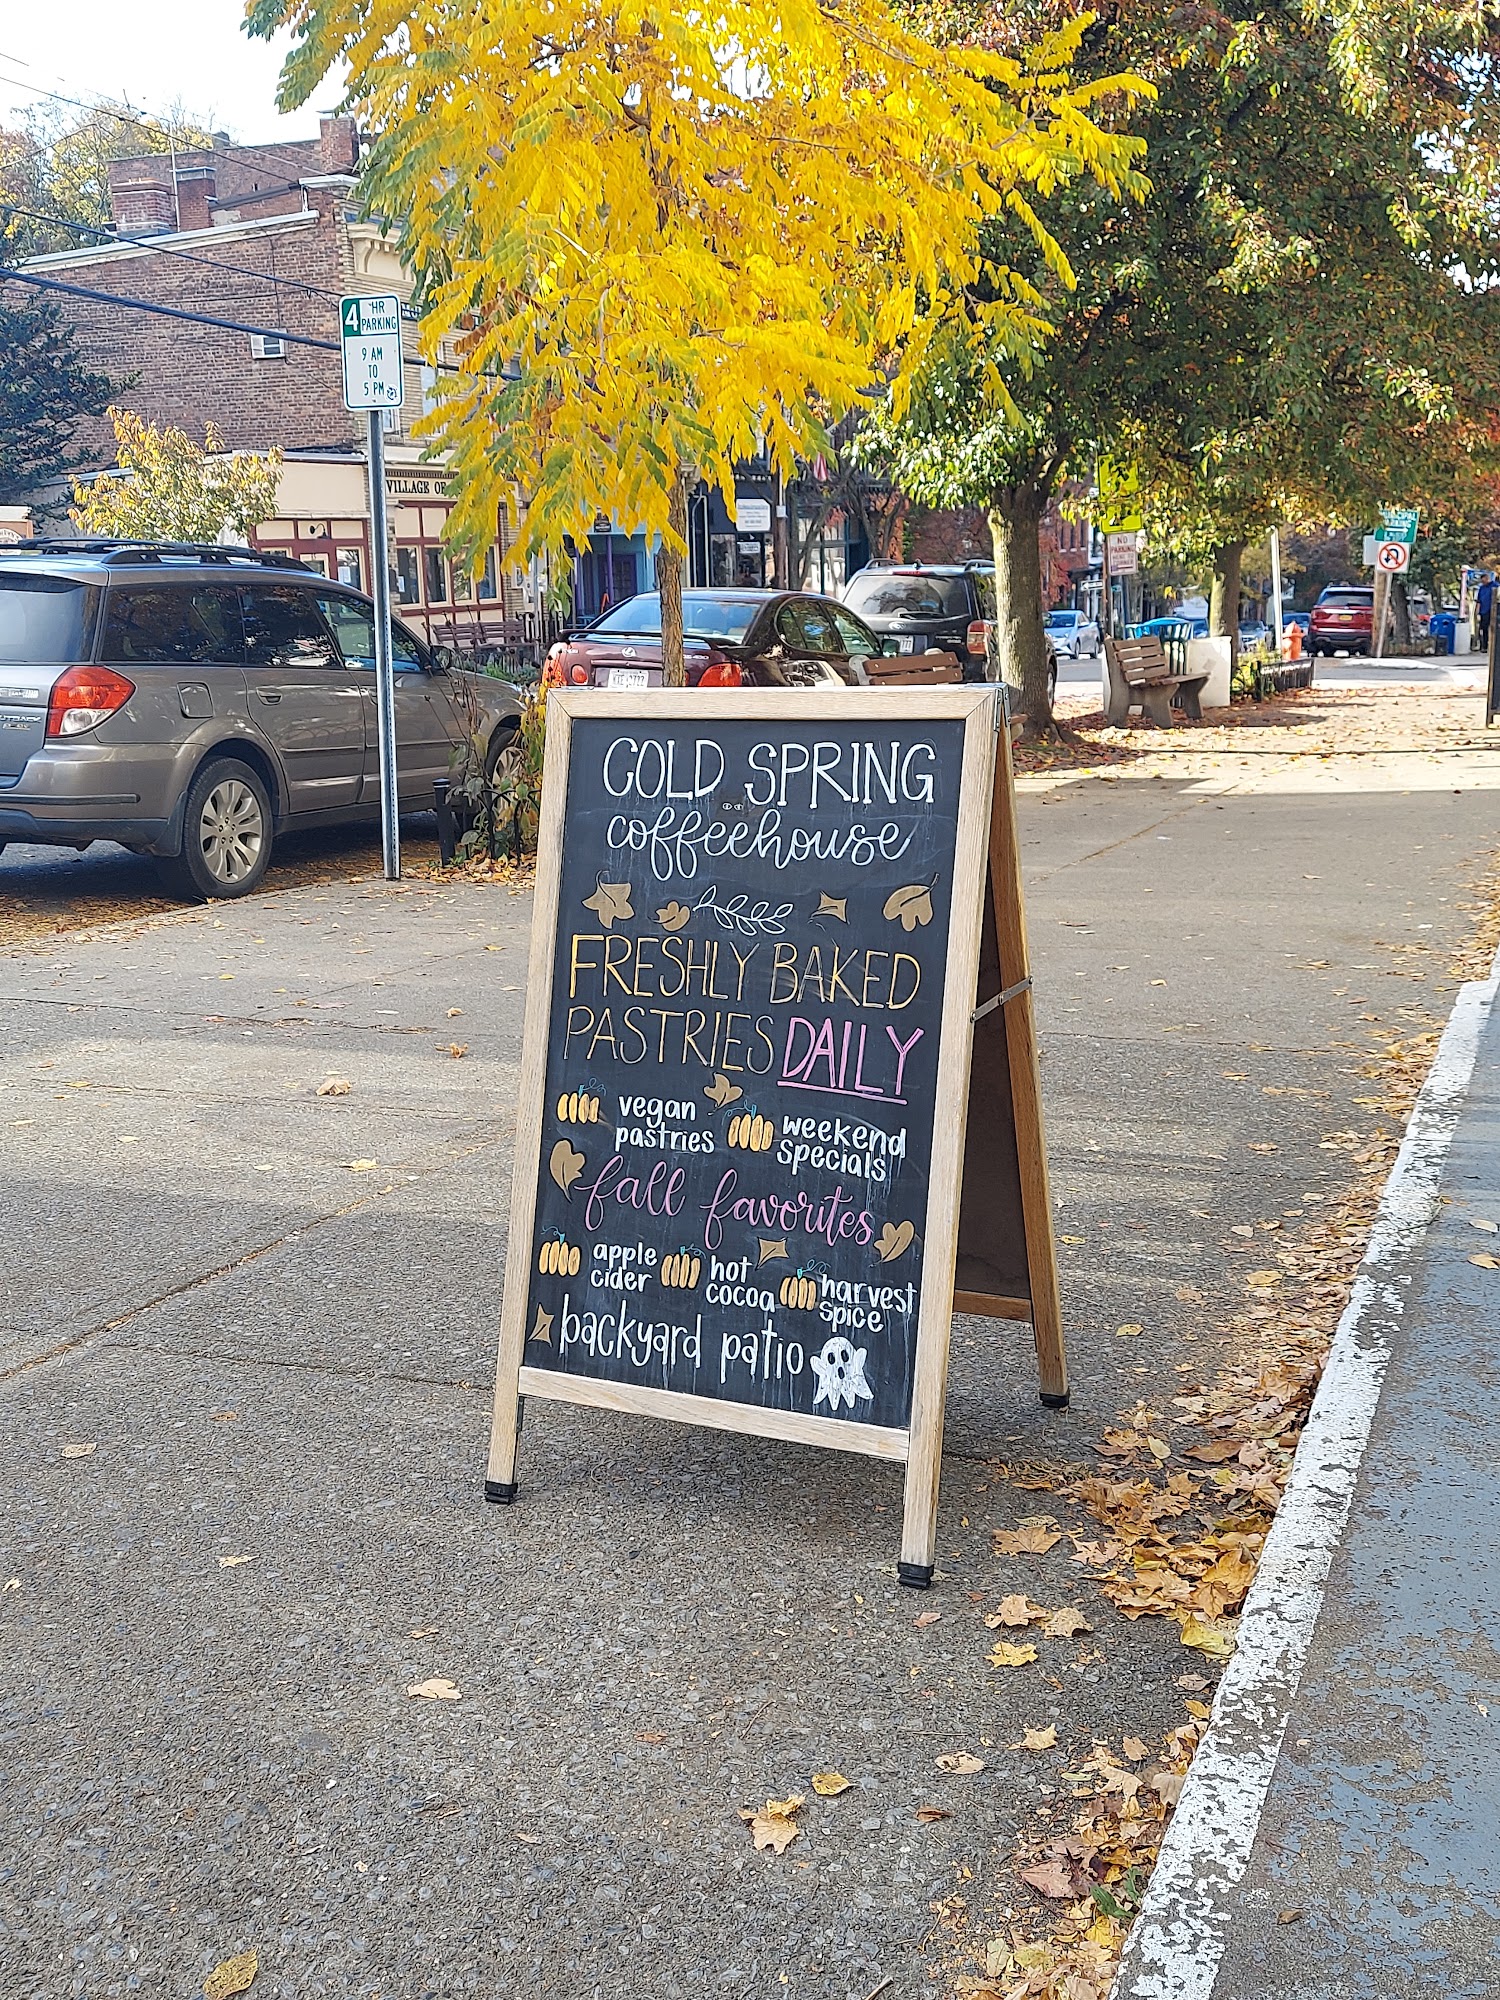 4 HR
PARKING
9 AM
TO
5 PM
VILLAGE OF
NO
PARKING
PARKING
OUTBACK
COLD SPRING
coffeehouse
FRESHLY BAKED
PASTRIES DAILY
vegan
pastries
weekend
specials
fall favorites
apple
cider
hot
cocoa
harvest
spice
backyard patio